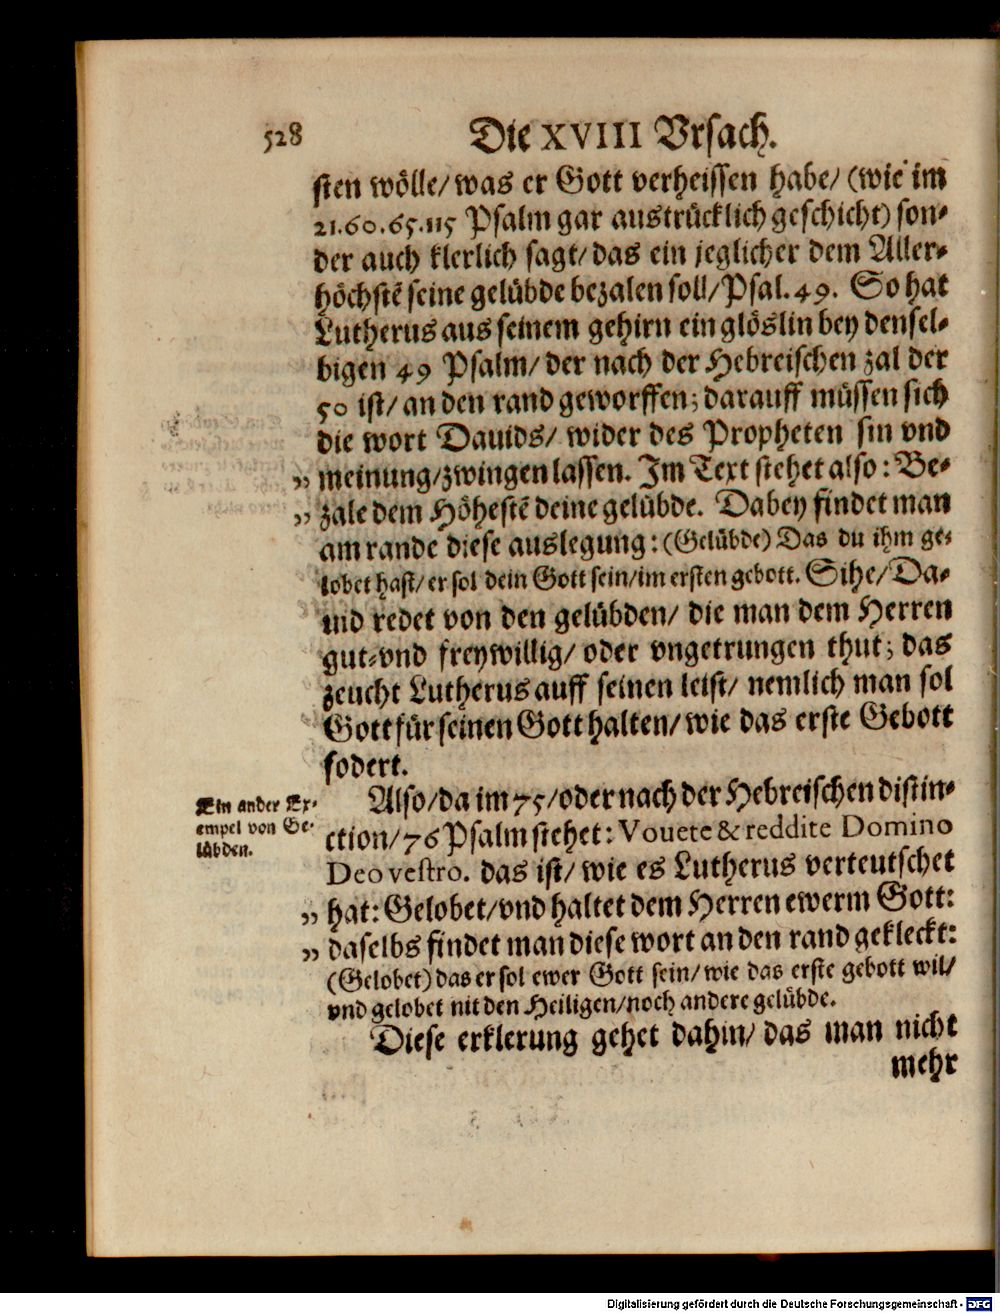 528
Die XVIII Vrsach.
sten wölle/ was er Gott verheissen habe/ (wie im
21.60.65.115 Psalm gar austrücklich geschicht) son-
der auch klerlich sagt/ das ein jeglicher dem Aller-
höchstē seine gelübde bezalen soll/ Psal. 49. So hat
Lutherus aus seinem gehirn ein glöslin bey densel-
bigen 49 Psalm/ der nach der Hebreischen zal der
50 ist/ an den rand geworffen; darauff müssen sich
die wort Dauids/ wider des Propheten sin vnd
„ meinung/ zwingen lassen. Im Text stehet also: Be-
„ zale dem Höhestē deine gelübde. Dabey findet man
am rande diese auslegung: (Gelübde) Das du ihm ge-
lobet hast/ er sol dein Gott sein/ im ersten gebott. Sihe/ Da-
uid redet von den gelübden/ die man dem Herren
gut-vnd freywillig/ oder vngetrungen thut; das
zeucht Lutherus auff seinen leist/ nemlich man sol
Gott für seinen Gott halten/ wie das erste Gebott
fodert.
Ein ander Ex-
empel von Ge-
lübden.
Also/ da im 75/ oder nach der Hebreischen distin-
ction/ 76 Psalm stehet: Vouete & reddite Domino
Deo vestro. das ist/ wie es Lutherus verteutschet
„ hat: Gelobet/ vnd haltet dem Herren ewerm Gott:
„ daselbs findet man diese wort an den rand gekleckt:
(Gelobet) das er sol ewer Gott sein/ wie das erste gebott wil/
vnd gelobet nit den Heiligen/ noch andere gelübde.
Diese erklerung gehet dahin/ das man nicht
mehr
Digitalisierung gefördert durch die Deutsche Forschungsgemeinschaft - DFG